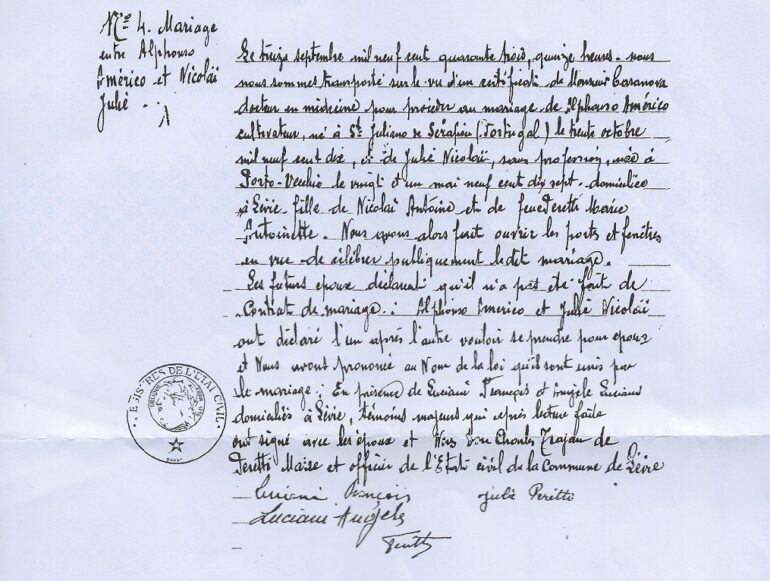 Nº 4. Mariage
entre Alphonso
Américo et Nicolaï
Julie
Le treize septembre mil neuf cent quarante trois, quinze heures. nous
nous sommes transporté sur le vu d'un certificat de Monsieur Casanova
docteur en médecine pour procéder au mariage de Alphonso Américo
cultivateur, né à St Juliano de Sérafiou (Portugal) le trente octobre
mil neuf cent dix, et de Julie Nicolaï, sans profession, née à
Porto-Vecchio le vingt et un mai neuf cent dix sept. domiciliée
à Lévie fille de Nicolaï Antoine et de feue Peretti Marie
Antoinette. Nous avons alors fait ouvrir les ports et fenêtres
en vue de célébrer publiquement le dit mariage.
Les futurs époux déclarent qu'il n'a pas été fait de
Contrat de mariage. : Alphonso Americo et Julie Nicolaï
ont déclaré l'un après l'autre vouloir se prendre pour époux
et Nous avons prononcé au Nom de la loi qu'ils sont unis par
le mariage : En présence de Luciani François et Angèle Luciani
domiciliés à Lévie, témoins majeurs qui après lecture faite
ont signé avec les époux et Nous Don Charles de
Peretti Maire et officier de l'Etat civil de la Commune de Lévie
Luciani François Julie Peretti
Luciani Angèle
REGISTRES DE L'ETAT CIVIL